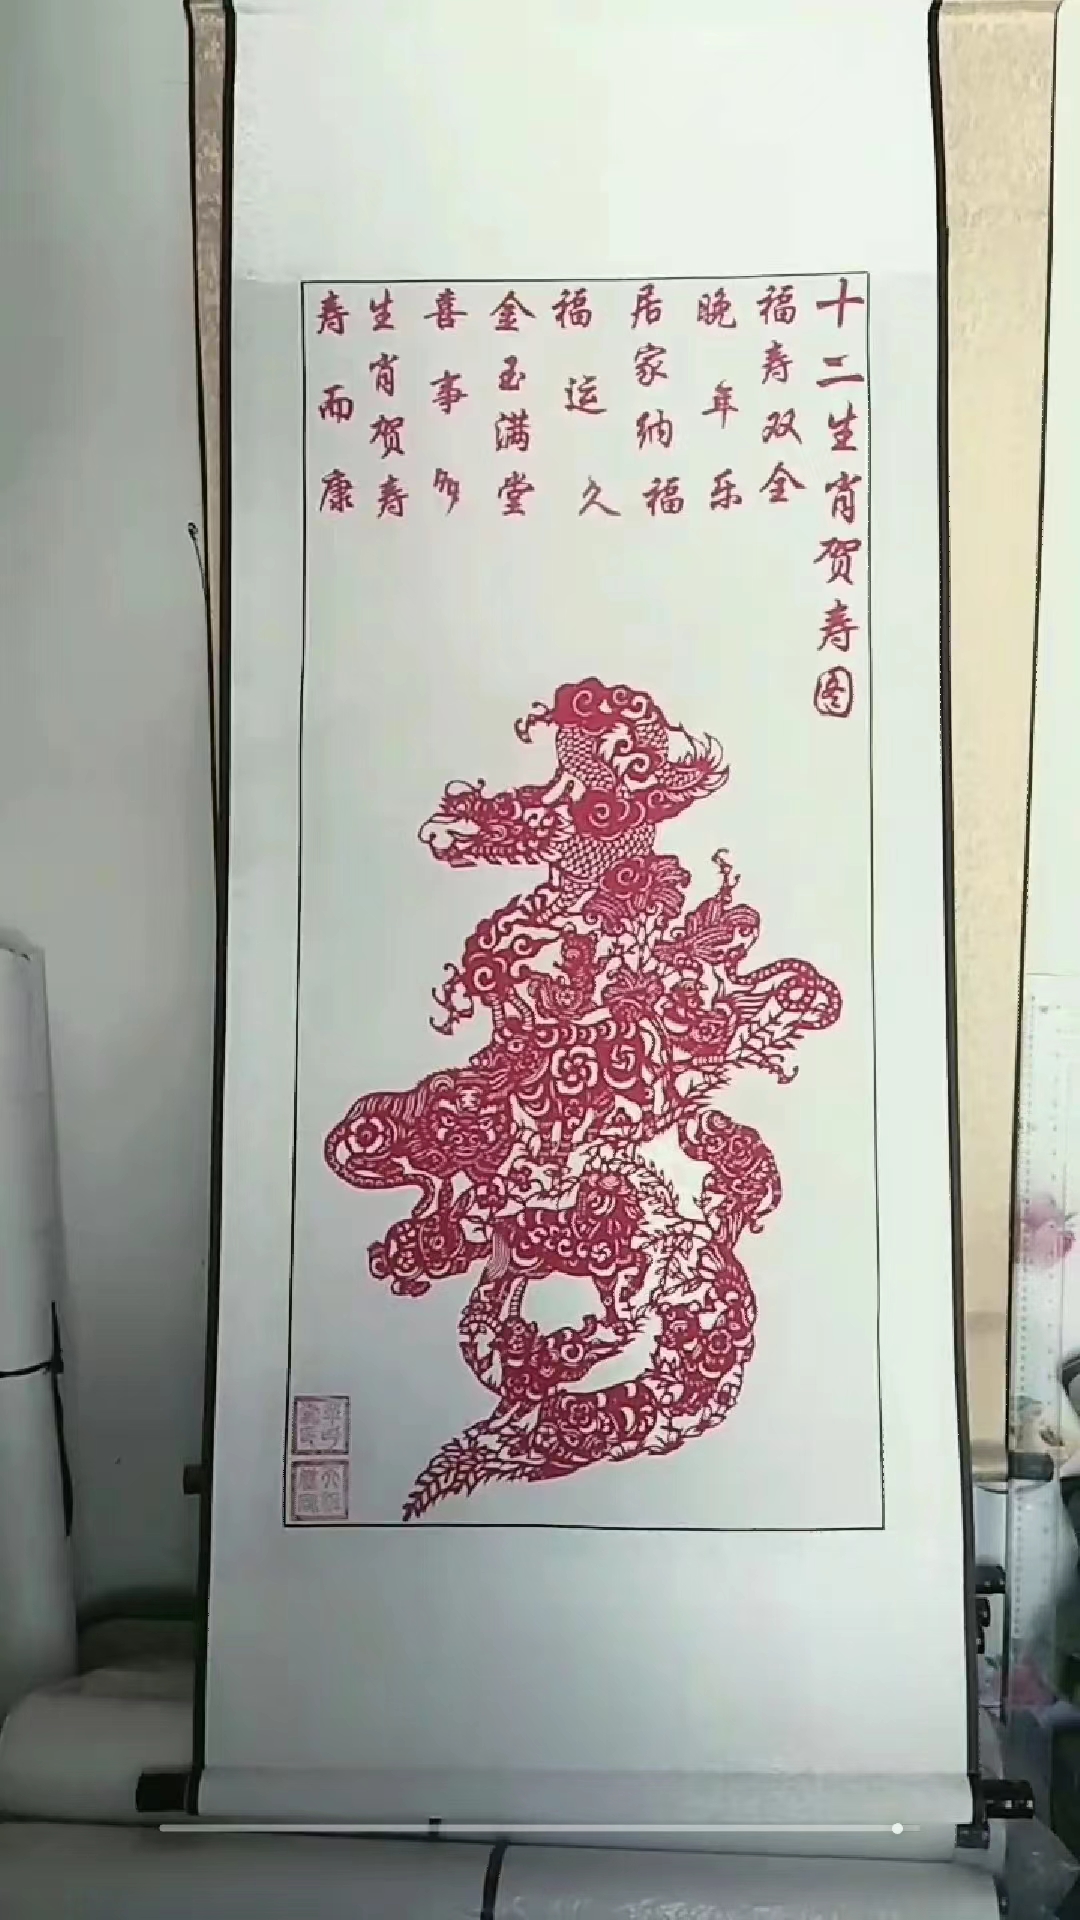 十二生肖贺寿图
福寿双全
晚年乐
居家纳福
福运久
金玉满堂
喜事多
生肖贺寿
寿而康